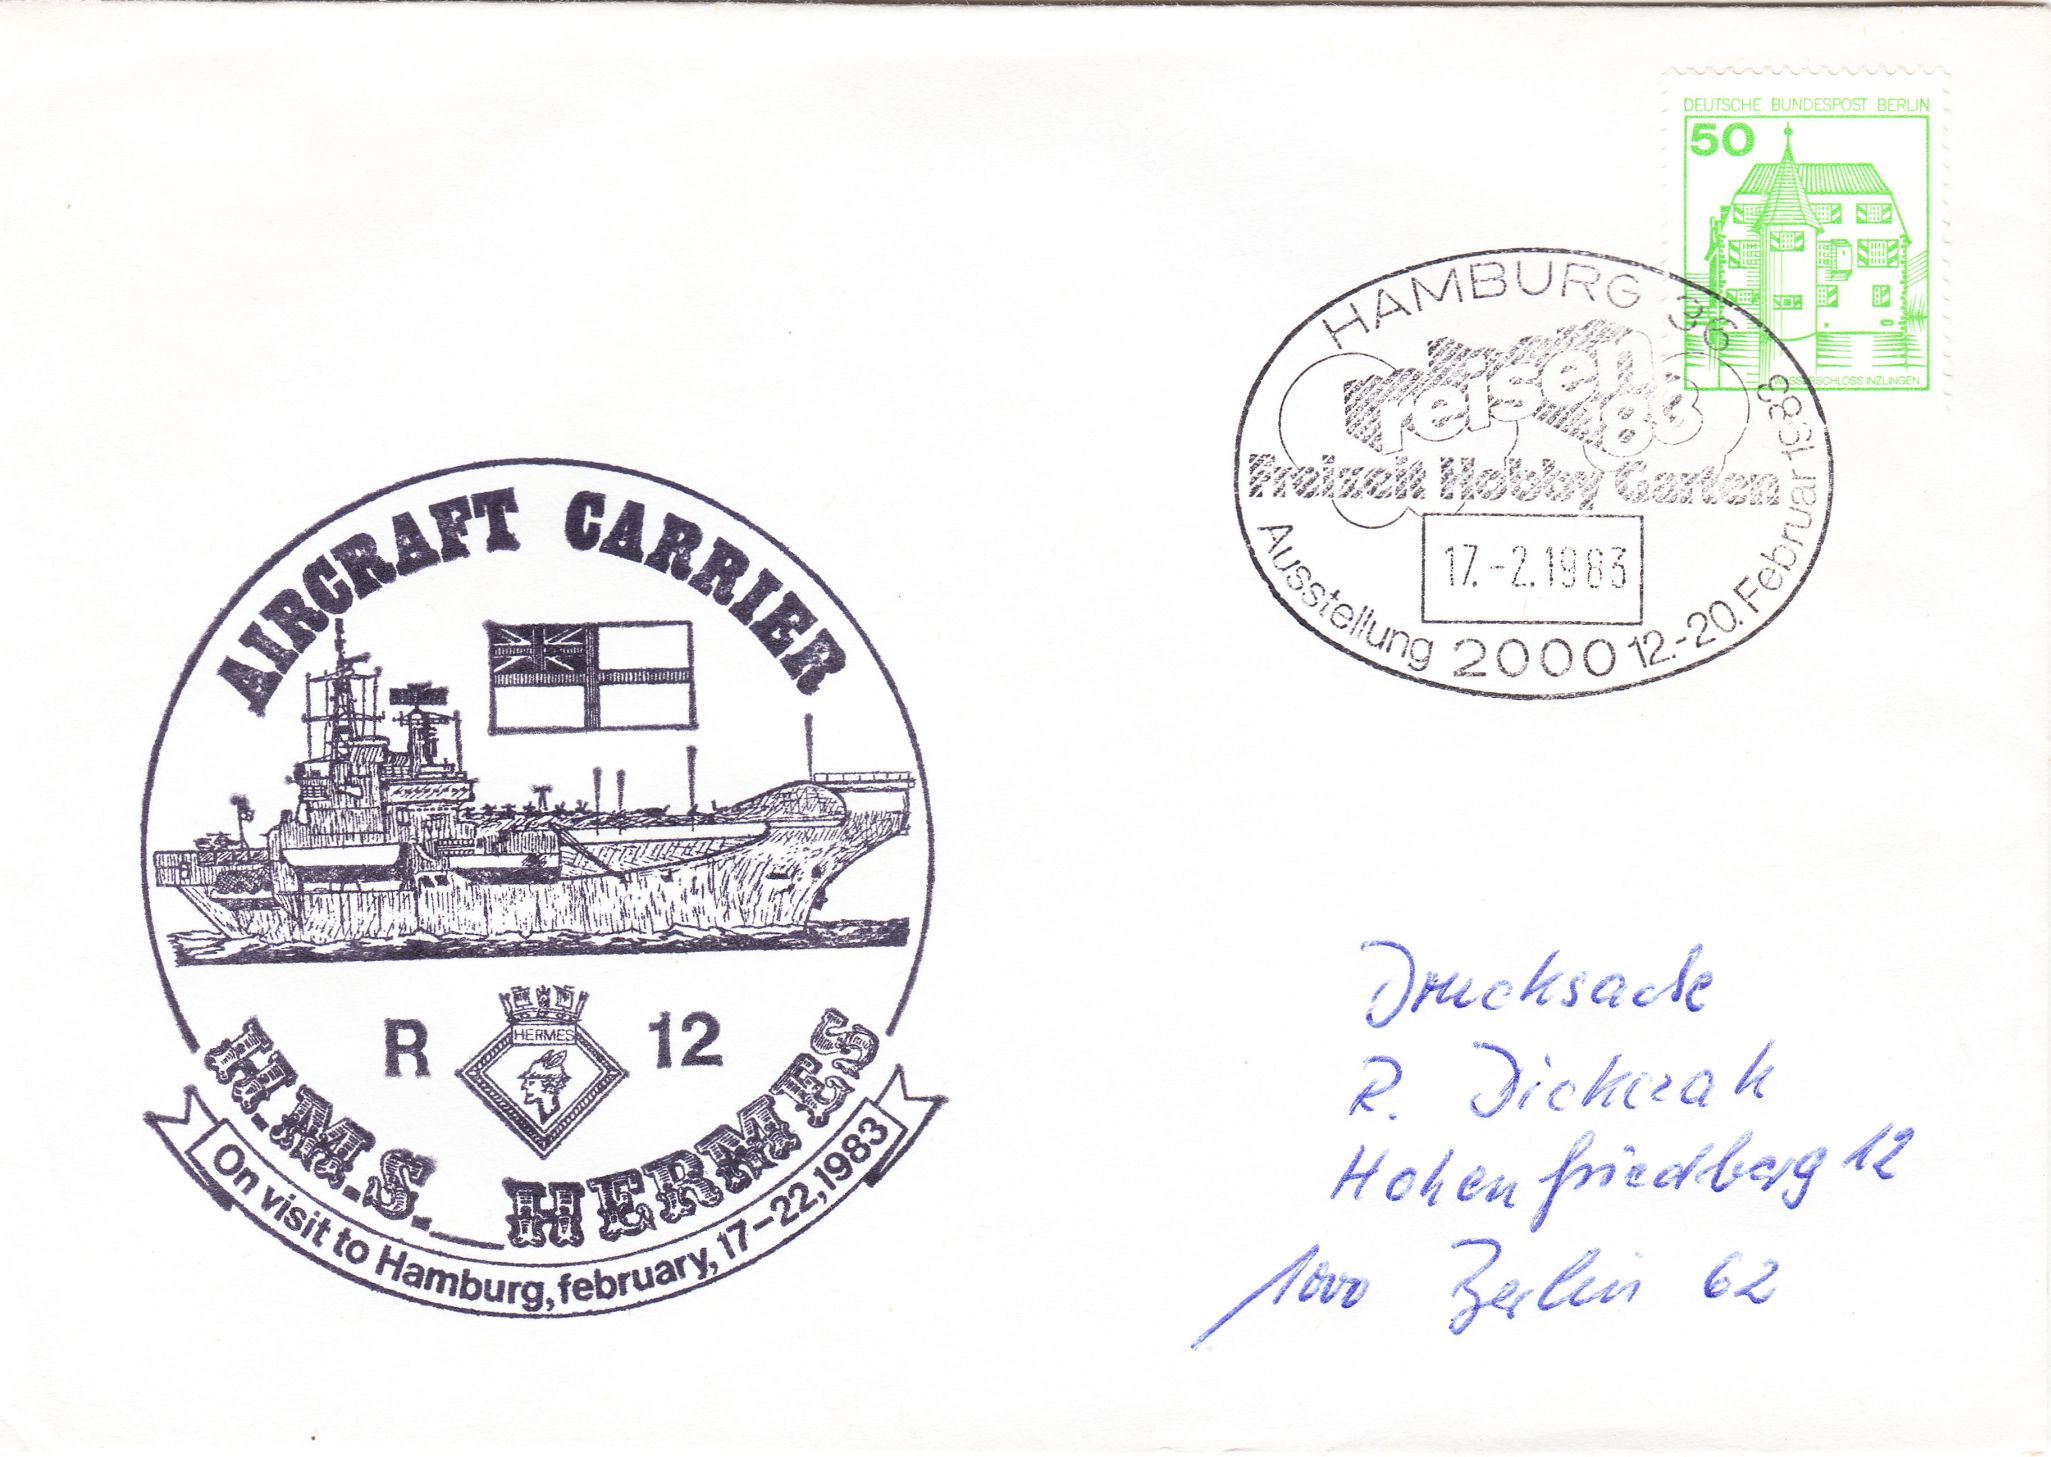 DEUTSCHE BUNDESPOST BERLIN
50
WASSERSCHLOSS INZLINGEN
HAMBURG 36
reisen 83
Freizeit Hobby Garten
17.-2.1983
Ausstellung 2000 12.-20. Februar 1983
AIRCRAFT CARRIER
R 12
HERMES
H.M.S. HERMES
On visit to Hamburg, february, 17-22, 1983
Drucksache
R. Dickczak
Hohenfriedberg 12
1000 Berlin 62